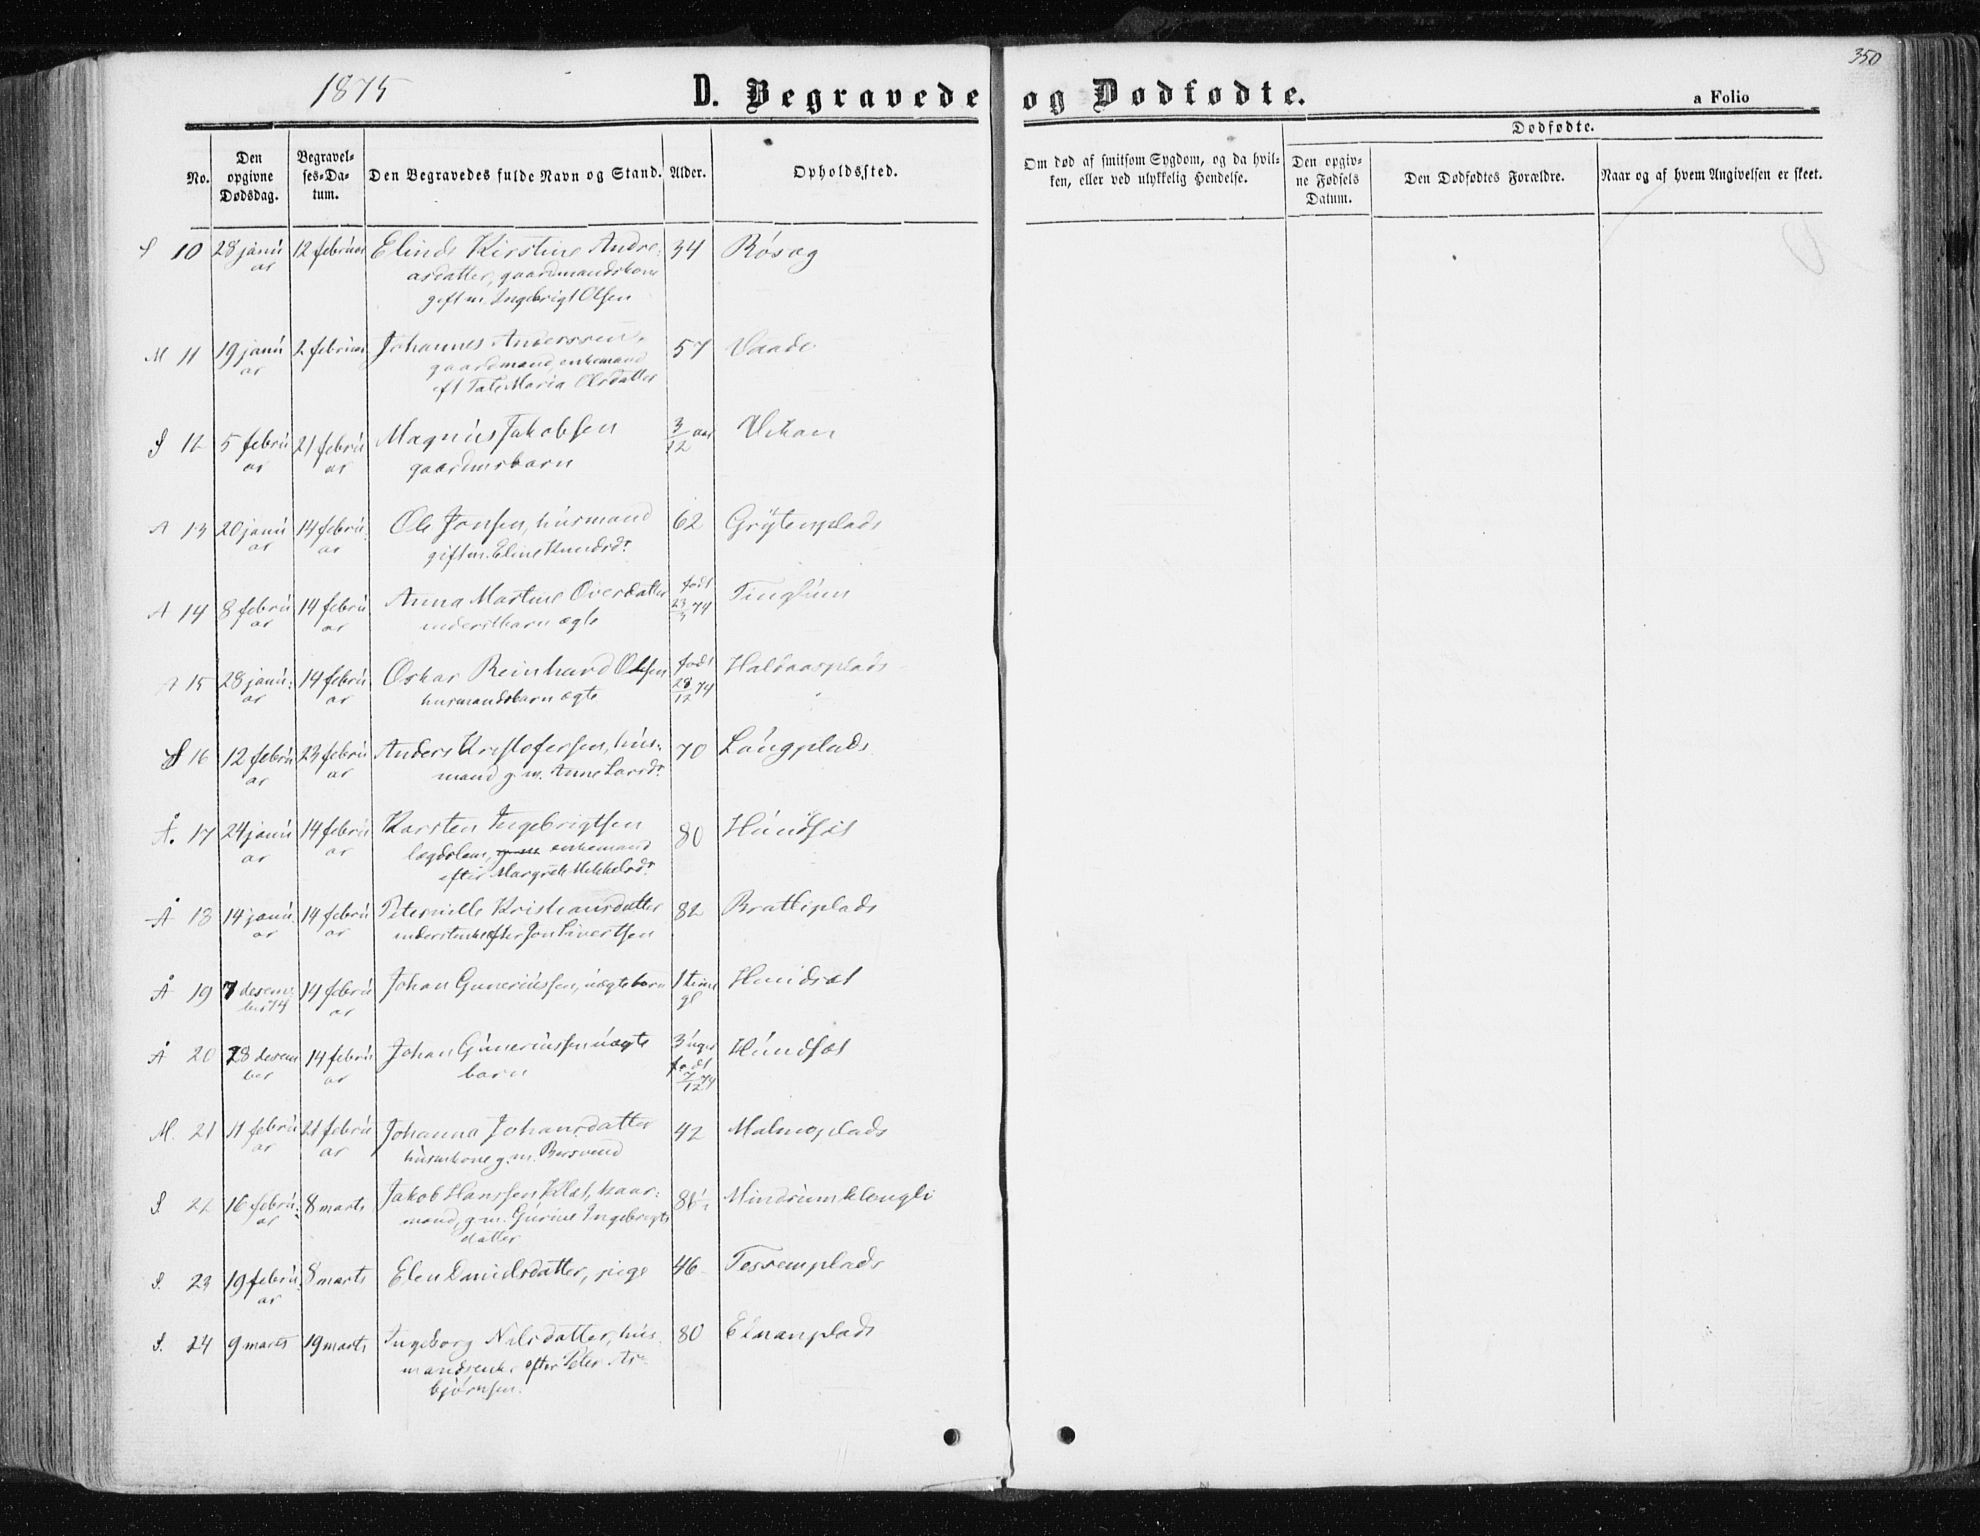 350
1875
D. Begravede og Dødfødte.
a Folio
No.
Den opgivne Dødsdag.
Begravelses-Datum.
Den Begravedes fulde Navn og Stand.
Alder.
Opholdssted.
Om død af smitsom Sygdom, og da hvilken, eller ved ulykkelig Hendelse.
Dødfødte.
Den opgivne Fødsels Datum.
Den Dødfødtes Forældre.
Naar og af hvem Angivelsen er skeet.
S 10 28 januar 12 februar Kirstine Andre- 34 Røsæg
asdatter, gaardmandskone
gift m. Ingebrigt Olsen
M 11 19 januar 2 februar Johannes Anderssen, 57 Vaade
gaardmand, enkemand
eft Maria Olsdatter
S 12 5 februar 21 februar Magnus Jakobsen 3/12 aar
gaardmsbarn
A 13 20 januar 14 februar Ole Jonsen, husmand 62 Grytenplads
gift m. Eline Knudsd.
A 14 8 februar 14 februar Anna Martine født 23/3 74
barn ægte
A 15 28 januar 14 februar Oskar Reinhard Olsen født 28/12 74 Haldaasplads
husmandsbarn ægte
S 16 12 februar 23 februar Anders Kristofersen, hus- 70 Langplads
mand g. m. Anne Larsd.
Å. 17 24 januar 14 februar Karsten Ingebrigtsen 80 Hundsæt
lægdslem, enkemand
efter Margrete Mikkelsd.
Å 18 14 januar 14 februar Peternille Kristiansdatter 82 Brattiplads
efter Jon Sivertsen
Å 19 7 desember 74 14 februar Johan Guneriussen, uægte barn 1 time gl Hundsæt
Å 20 28 desember 14 februar Johan Guneriussen uægte 3 uger født 7/12 74 Hundsæt
barn
M. 21 11 februar 21 februar Johanna Johansdatter 42 Malmoplads
husmkone g. m. Bersvend
S. 22 16 februar 8 marts Jakob Hanssen Klæt, kaar-
mand, g. m. Gurine Ingebrigts
datter
S. 23 19 februar 8 marts Elen Danielsdatter, pige 46 Tessemplads
S. 24 9 marts 19 marts Ingeborg Nilsdatter, hus 80
mandsenke efter Peter As-
bjørnsen.